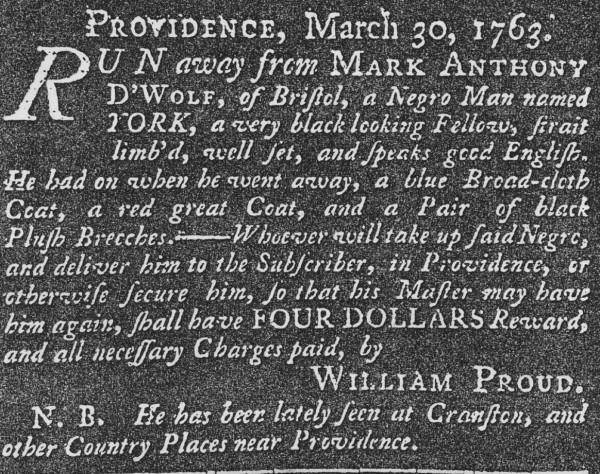 PROVIDENCE, March 30, 1763.
RUN away from MARK ANTHONY
D'WOLF, of Briſtol, a Negro Man named
YORK, a very black looking Fellow, ſtrait
limb'd, well ſet, and ſpeaks good Engliſh.
He had on when he went away, a blue Broad-cloth
Coat, a red great Coat, and a Pair of black
Pluſh Breeches.——Whoever will take up ſaid Negro,
and deliver him to the Subſcriber, in Providence, or
otherwiſe ſecure him, ſo that his Maſter may have
him again, ſhall have FOUR DOLLARS Reward,
and all neceſſary Charges paid, by
WILLIAM PROUD.
N. B. He has been lately ſeen at Cranſton, and
other Country Places near Providence.